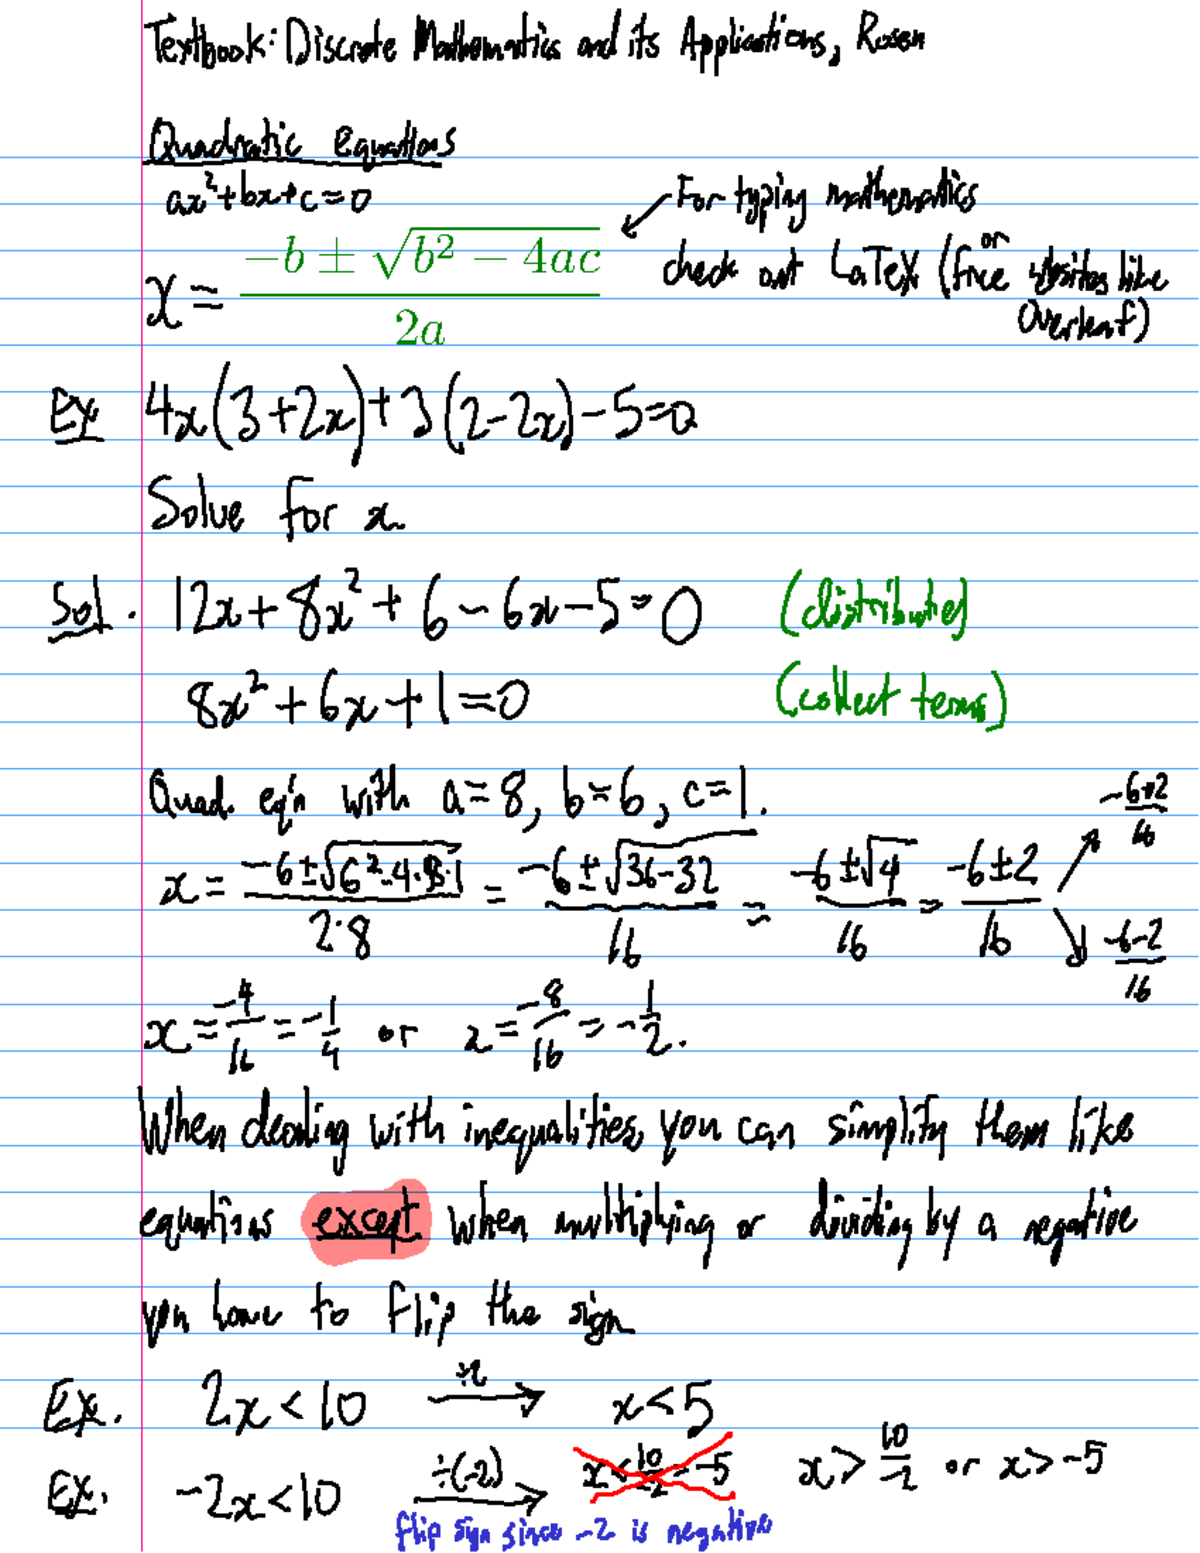 Textbook: Discrete Mathematics and its Applications, Rosen
Quadratic equations
ax²+bx+c=0
x = (-b ± √(b² - 4ac)) / 2a
For typing mathematics
check out LaTeX (free or websites like
Overleaf)
Ex 4x(3+2x)+3(2-2x)-5=0
Solve for x.
Sol. 12x+8x²+6-6x-5=0 (distributed)
8x²+6x+1=0 (collect terms)
Quad. eq'n with a=8, b=6, c=1.
x = (-6±√(6²-4·8·1)) / 2·8 = (-6±√(36-32)) / 16 = (-6±√4) / 16 = (-6±2) / 16
(-6+2) / 16
(-6-2) / 16
x = -4/16 = -1/4 or x = -8/16 = -1/2.
When dealing with inequalities, you can simplify them like
equations except when multiplying or dividing by a negative
you have to flip the sign
Ex. 2x<10 ÷2 → x<5
Ex. -2x<10 ÷(-2) → x<10/-2=-5 x>10/-2 or x>-5
flip sign since -2 is negative